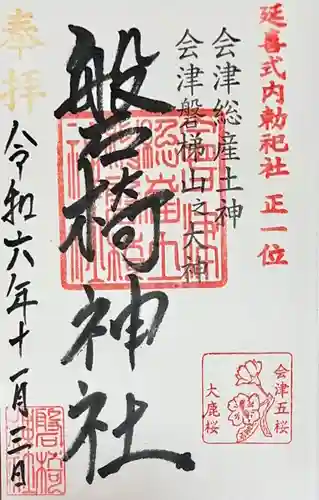 延喜式内勅祀社 正一位
会津総産土神
会津磐梯山之大神
磐椅神社
奉拝
令和六年十一月三日
会津五桜
大鹿桜